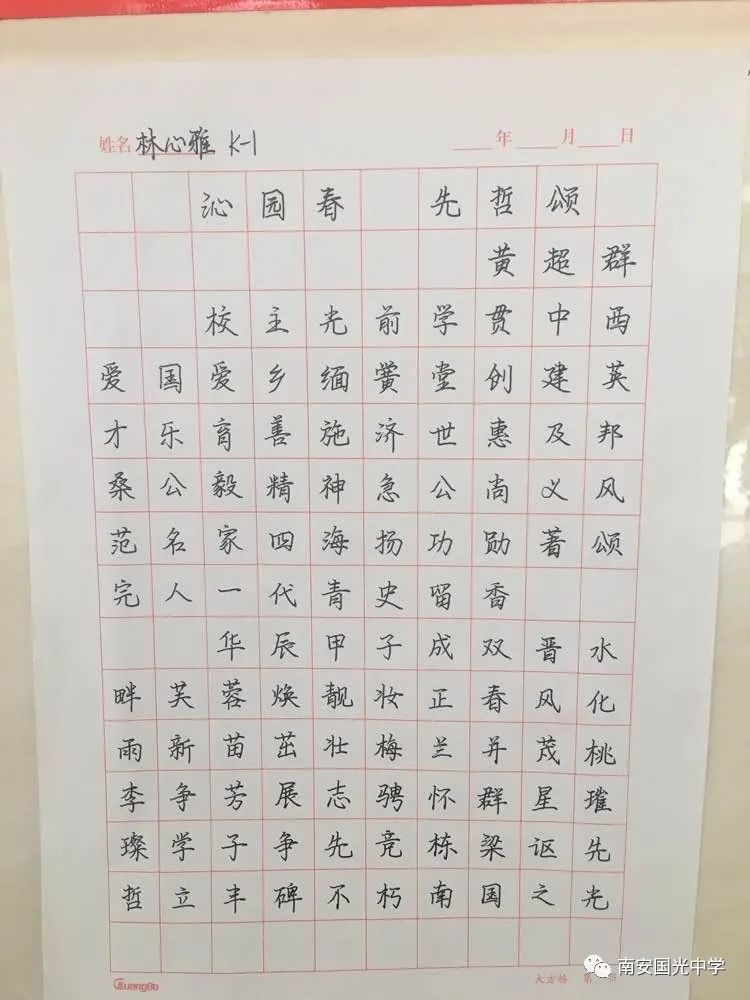 姓名 林心雅 K-1 年 月 日
沁园春 先哲颂
黄超群
校主光前学贯中西
爱国爱乡缅黉堂创建英
才乐育善施济世惠及邦
桑公毅精神急公尚义风
范名家四海扬功勋著颂
完人一代青史留香
华辰甲子成双晋水
畔芙蓉焕靓妆正春风化
雨新苗茁壮梅兰并茂桃
李争芳展志骋怀群星璀
璨学子争先竞栋梁讴先
哲立丰碑不朽南国之光
GuangBo 大方格 第
南安国光中学